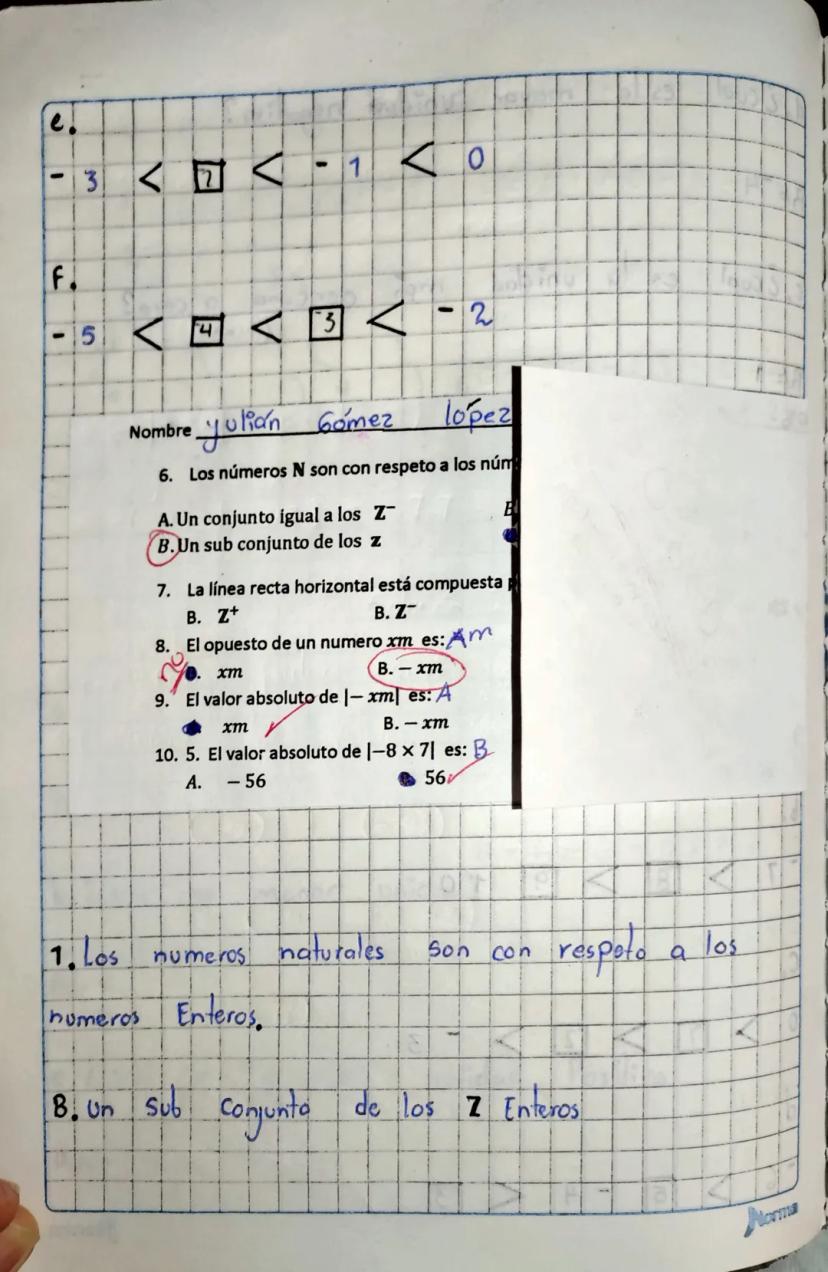 e.
- 3 < < - 1 < 0
f.
- 5 < -4 < -3 < - 2
Nombre yulián Gómez lópez
6. Los números N son con respeto a los núm
A. Un conjunto igual a los Z⁻
B. Un sub conjunto de los z
7. La línea recta horizontal está compuesta
B. Z⁺ B. Z⁻
8. El opuesto de un numero xm es: Am
xm B. − xm
9. El valor absoluto de |− xm| es: A
xm B. − xm
10. 5. El valor absoluto de |−8 × 7| es: B
A. − 56 56
1. Los numeros naturales son con respeto a los
numeros Enteros.
B. Un sub conjunto de los Z Enteros
Norma